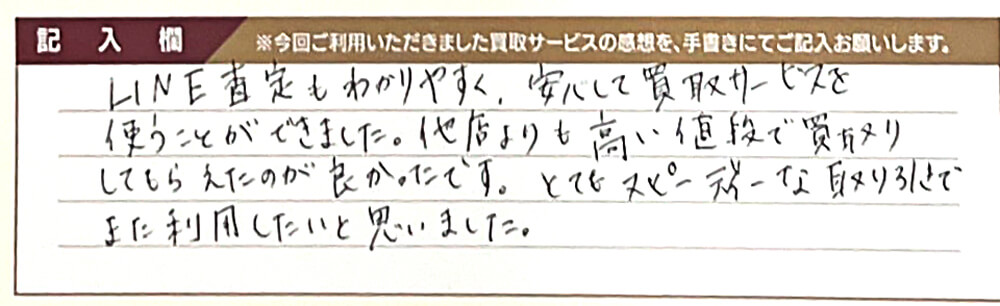 記入欄
※今回ご利用いただきました買取サービスの感想を、手書きにてご記入お願いします。
LINE査定もわかりやすく、安心して買取サービスを
使うことができました。他店よりも高い値段で買取り
してもらえたのが良かったです。とてもスピーディーな取り引きで
また利用したいと思いました。